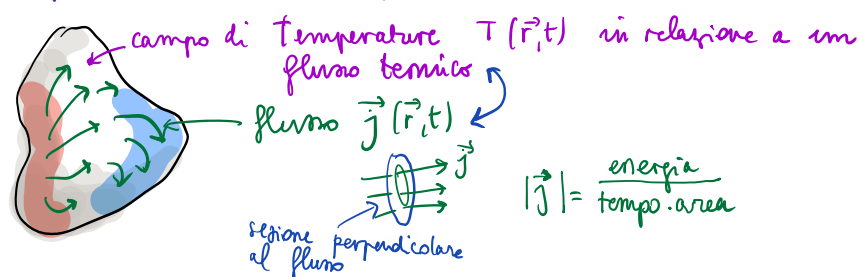 campo di temperature T(r⃗,t) in relazione a un
flusso termico
flusso j⃗(r⃗,t)
j⃗
|j⃗| = energia / tempo·area
sezione perpendicolare
al flusso